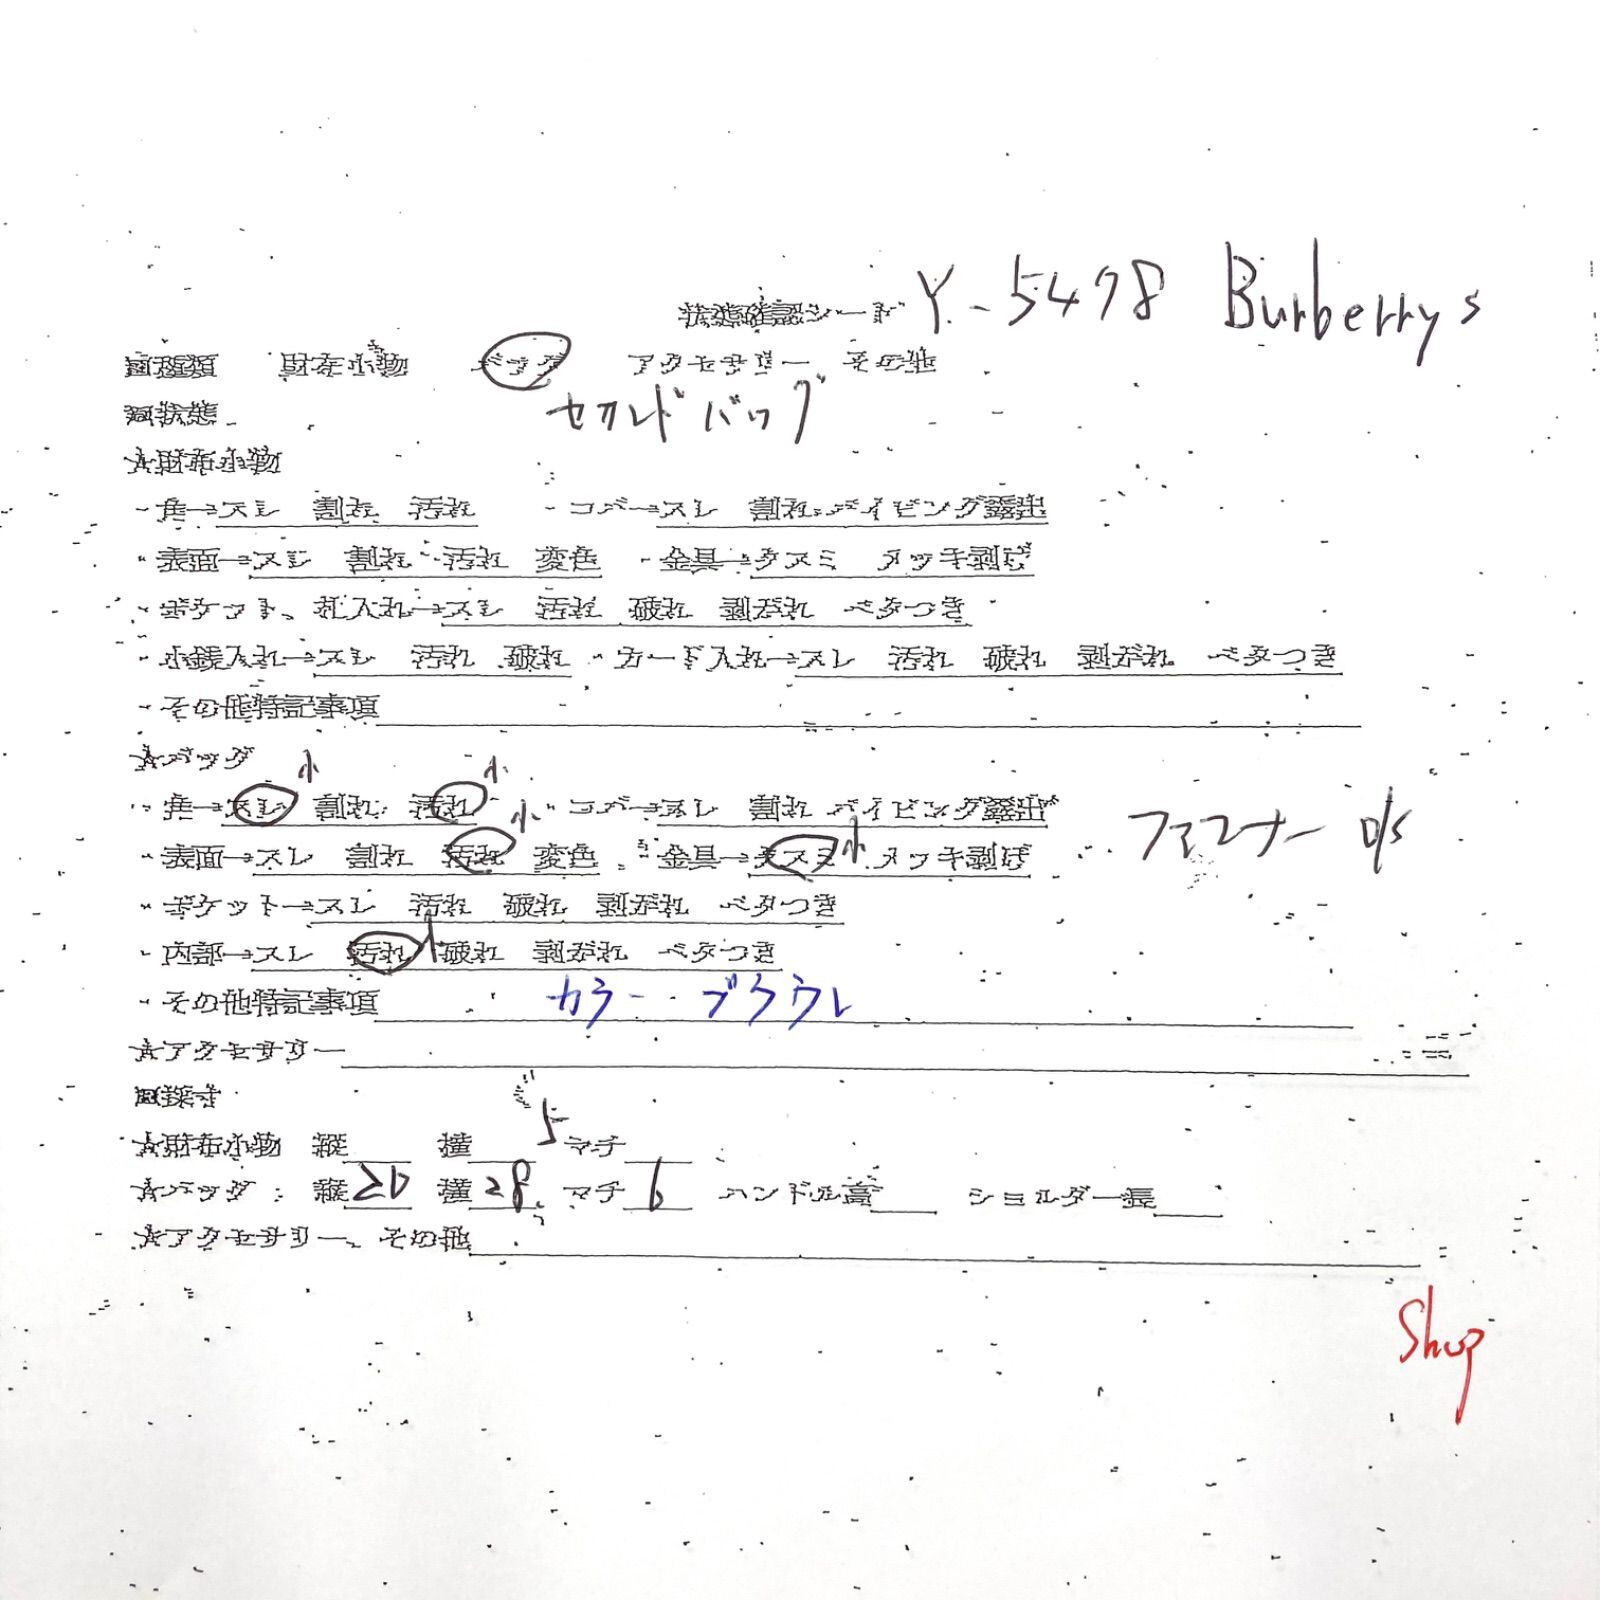 状態確認シート Y-5498 Burberrys
□種類 財布小物 バッグ アクセサリー その他
□状態 セカンドバッグ
☆財布小物
・角→スレ 割れ 汚れ ・コバ→スレ 割れ パイピング露出
・表面→スレ 割れ 汚れ 変色 ・金具→クスミ メッキ剥げ
・ポケット、札入れ→スレ 汚れ 破れ 剥がれ ベタつき
・小銭入れ→スレ 汚れ 破れ ・カード入れ→スレ 汚れ 破れ 剥がれ ベタつき
・その他特記事項
☆バッグ
小 小
・角→スレ 割れ 汚れ ・コバ→スレ 割れ パイピング露出
小 小 ファスナー
・表面→スレ 割れ 汚れ 変色 ・金具→クスミ メッキ剥げ
・ポケット→スレ 汚れ 破れ 剥がれ ベタつき
・内部→スレ 汚れ 小 破れ 剥がれ ベタつき
・その他特記事項 カラー ブラウン
☆アクセサリー
□採寸
☆財布小物 縦 横 マチ
5
☆バッグ: 縦20 横28 マチ6 ハンドル高 ショルダー長
☆アクセサリー、その他
Shop